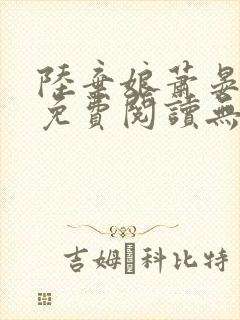 陸棄娘蕭晏
免費閱讀無
吉姆·科比特